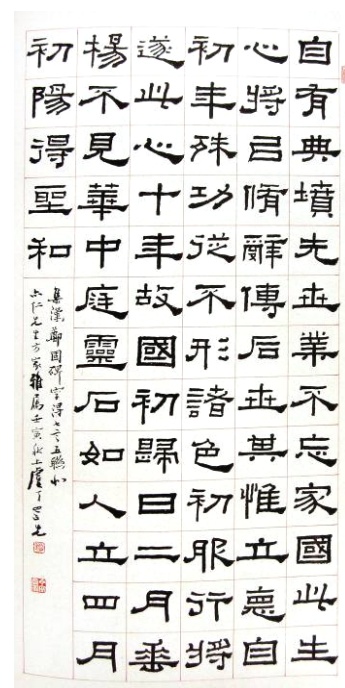 自有典墳先世業不忘家國此生
心將㠯脩辭傳后世其惟立悳自
初年殊功從不形諸色初服行將
遂此心十年故國初歸日二月垂
楊不見華中庭靈石如人立四月
初陽得聖和
集漢鄭固碑字得七言五聯
仁先生方家雅屬壬寅秋上虞丁